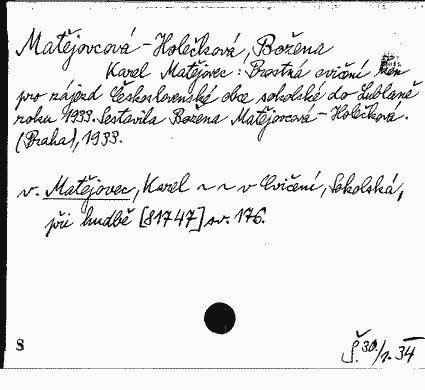 Matějovcová-Holečková, Božena
Karel Matějovec: Prostná cvičení žen
pro zájezd Československé obce sokolské do Lublaně
roku 1933. Sestavila Božena Matějovcová-Holečková.
(Praha), 1933.
v. Matějovec, Karel ~ ~ v Cvičení, Sokolská,
při hudbě [81747] sv. 176.
8
Š.30./1.34